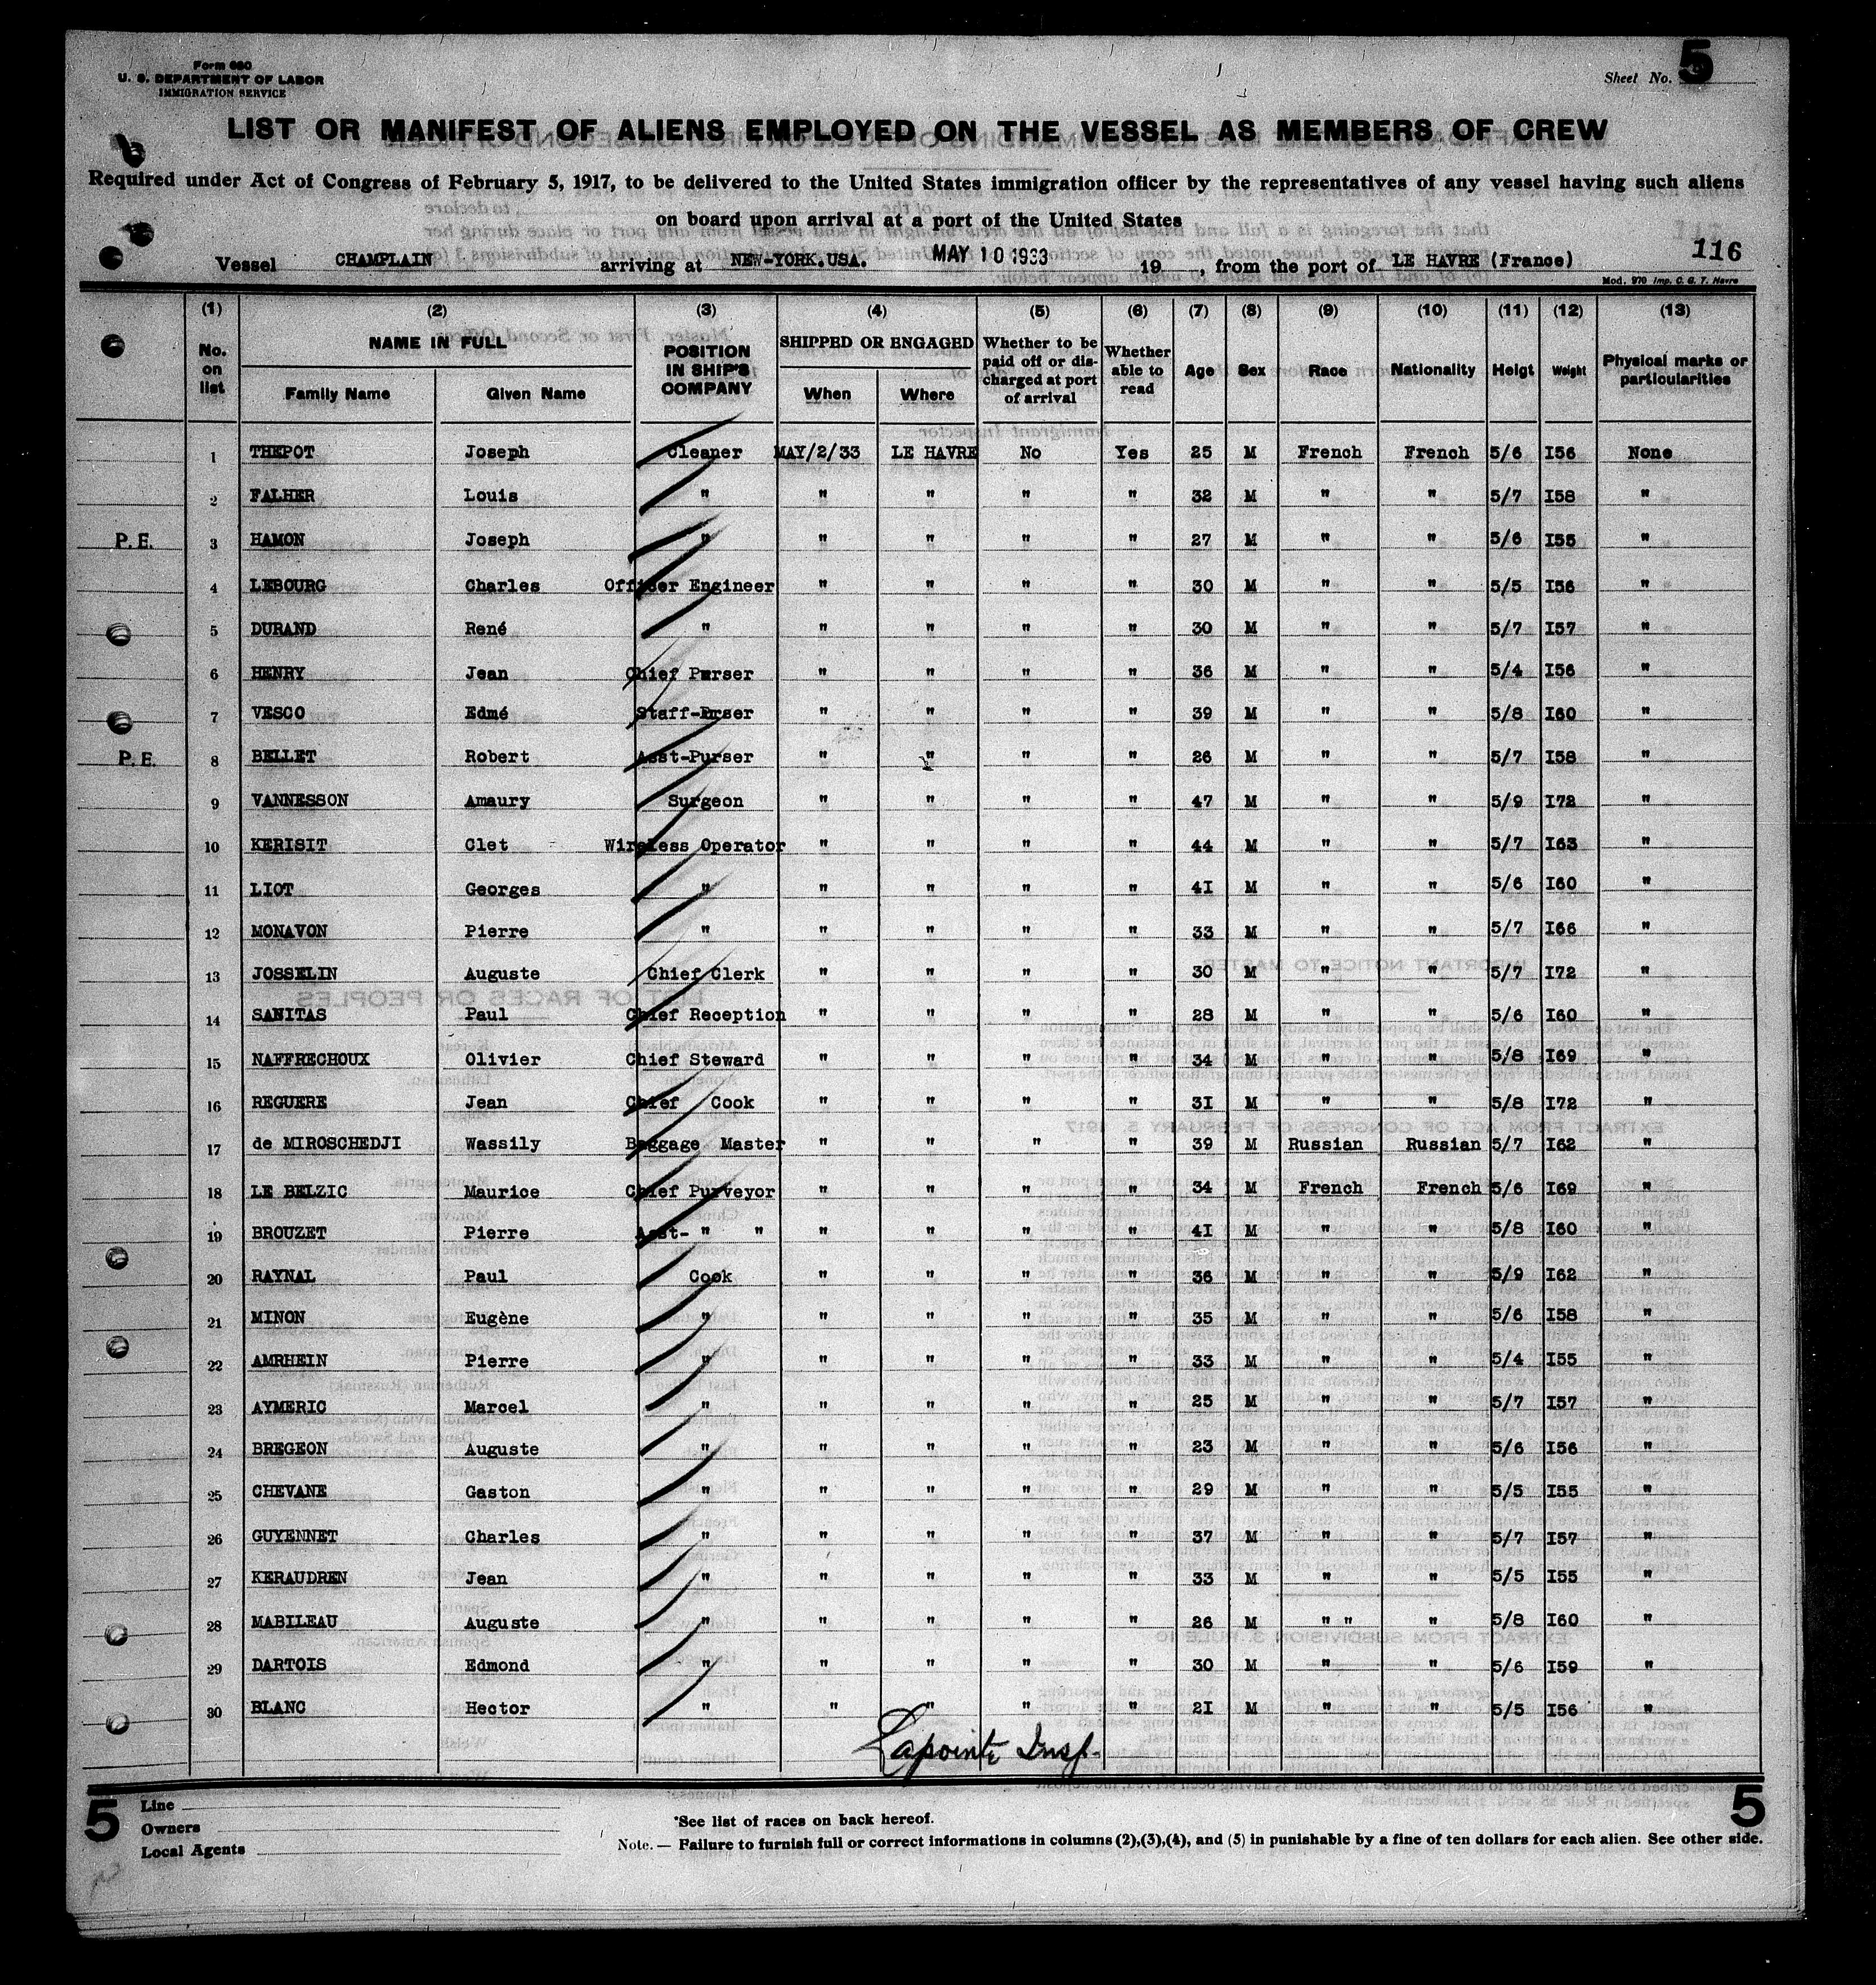 Form 680
U. S. DEPARTMENT OF LABOR
IMMIGRATION SERVICE
Sheet No. 5
LIST OR MANIFEST OF ALIENS EMPLOYED ON THE VESSEL AS MEMBERS OF CREW
Required under Act of Congress of February 5, 1917, to be delivered to the United States immigration officer by the representatives of any vessel having such aliens
on board upon arrival at a port of the United States
Vessel CHAMPLAIN arriving at NEW-YORK.USA. MAY 10 1933 19 , from the port of LE HAVRE (France) 116
Mod. 970 Imp. C. G. T. Havre
(1) (2) (3) (4) (5) (6) (7) (8) (9) (10) (11) (12) (13)
No. on list NAME IN FULL Family Name Given Name POSITION IN SHIP'S COMPANY SHIPPED OR ENGAGED When Where Whether to be paid off or discharged at port of arrival Whether able to read Age Sex Race Nationality Heigt Weight Physical marks or particularities
1 THEPOT Joseph Cleaner MAY/2/33 LE HAVRE No Yes 25 M French French 5/6 I56 None
2 FALHER Louis " " " " " 32 M " " 5/7 I58 "
P.E. 3 HAMON Joseph " " " " " 27 M " " 5/6 I55 "
4 LEBOURG Charles Officer Engineer " " " " 30 M " " 5/5 I56 "
5 DURAND René " " " " " 30 M " " 5/7 I57 "
6 HENRY Jean Chief Purser " " " " 36 M " " 5/4 I56 "
7 VESCO Edmé Staff-Purser " " " " 39 M " " 5/8 I60 "
P.E. 8 BELLET Robert Asst-Purser " " " " 26 M " " 5/7 I58 "
9 VANNESSON Amaury Surgeon " " " " 47 M " " 5/9 I72 "
10 KERISIT Clet Wireless Operator " " " " 44 M " " 5/7 I63 "
11 LIOT Georges " " " " " 4I M " " 5/6 I60 "
12 MONAVON Pierre " " " " " 33 M " " 5/7 I66 "
13 JOSSELIN Auguste Chief Clerk " " " " 30 M " " 5/7 I72 "
14 SANITAS Paul Chief Reception " " " " 28 M " " 5/6 I60 "
15 NAFFRECHOUX Olivier Chief Steward " " " " 34 M " " 5/8 I69 "
16 REGUERE Jean Chief Cook " " " " 3I M " " 5/8 I72 "
17 de MIROSCHEDJI Wassily Baggage Master " " " " 39 M Russian Russian 5/7 I62 "
18 LE BELZIC Maurice Chief Purveyor " " " " 34 M French French 5/6 I69 "
19 BROUZET Pierre Asst- " " " " " " 4I M " " 5/8 I60 "
20 RAYNAL Paul Cook " " " " 36 M " " 5/9 I62 "
21 MINON Eugène " " " " " 35 M " " 5/6 I58 "
22 AMRHEIN Pierre " " " " " 33 M " " 5/4 I55 "
23 AYMERIC Marcel " " " " " 25 M " " 5/7 I57 "
24 BREGEON Auguste " " " " " 23 M " " 5/6 I56 "
25 CHEVANE Gaston " " " " " 29 M " " 5/5 I55 "
26 GUYENNET Charles " " " " " 37 M " " 5/7 I57 "
27 KERAUDREN Jean " " " " " 33 M " " 5/5 I55 "
28 MABILEAU Auguste " " " " " 26 M " " " 5/8 I60 "
29 DARTOIS Edmond " " " " " 30 M " " 5/6 I59 "
30 BLANC Hector " " " " " 2I M " " 5/5 I56 "
Lapointe Insp.
5 Line
Owners
Local Agents
*See list of races on back hereof.
Note. — Failure to furnish full or correct informations in columns (2),(3),(4), and (5) in punishable by a fine of ten dollars for each alien. See other side.
5